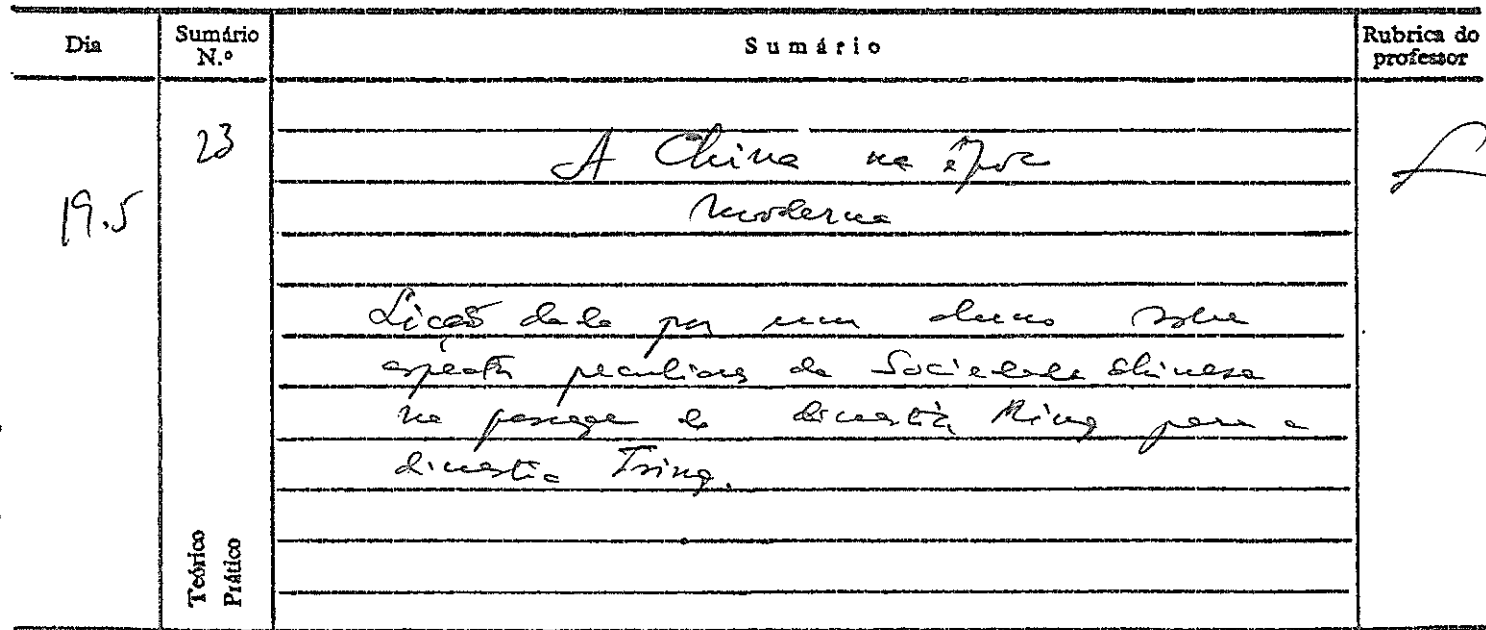 Dia
Sumário
N.º
Sumário
Rubrica do
professor
19.5
23
A China na época
moderna
Lição dada por um aluno sobre
aspectos peculiares da Sociedade Chinesa
na passagem da dinastia Ming para a
dinastia Tsing.
Teórico
Prático